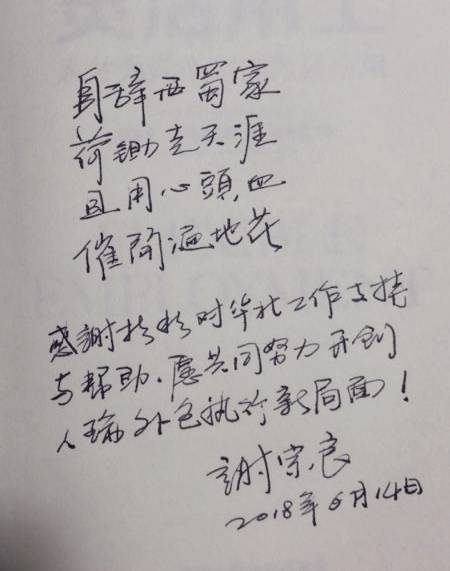 自辞西蜀家
荷锄走天涯
且用心頭血
催開遍地花
感謝对华社工作支持
与帮助。愿共同努力开创
人瑞外包执行新局面！
謝宗良
2018年6月14日